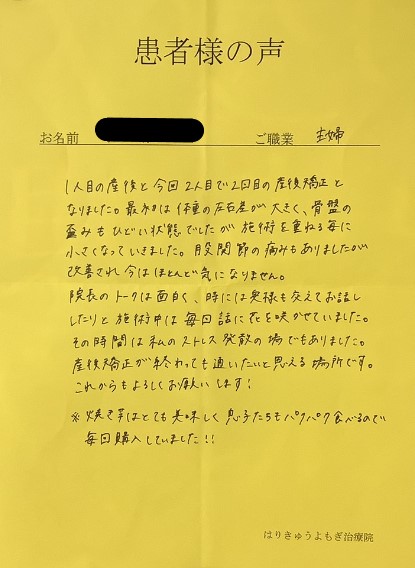 患者様の声
お名前 ご職業 主婦
1人目の産後と今回2人目で2回目の産後矯正と
なりました。最初は体重の左右差が大きく、骨盤の
歪みもひどい状態でしたが施術を重ねる毎に
小さくなっていきました。股関節の痛みもありましたが
改善され今はほとんど気になりません。
院長のトークは面白く、時には奥様も交えてお話し
したりと施術中は毎回話に花を咲かせていました。
その時間は私のストレス発散の場でもありました。
産後矯正が終わっても通いたいと思える場所です。
これからもよろしくお願いします!
※焼き芋はとても美味しく息子たちもパクパク食べるので
毎回購入していました!!
はりきゅうよもぎ治療院